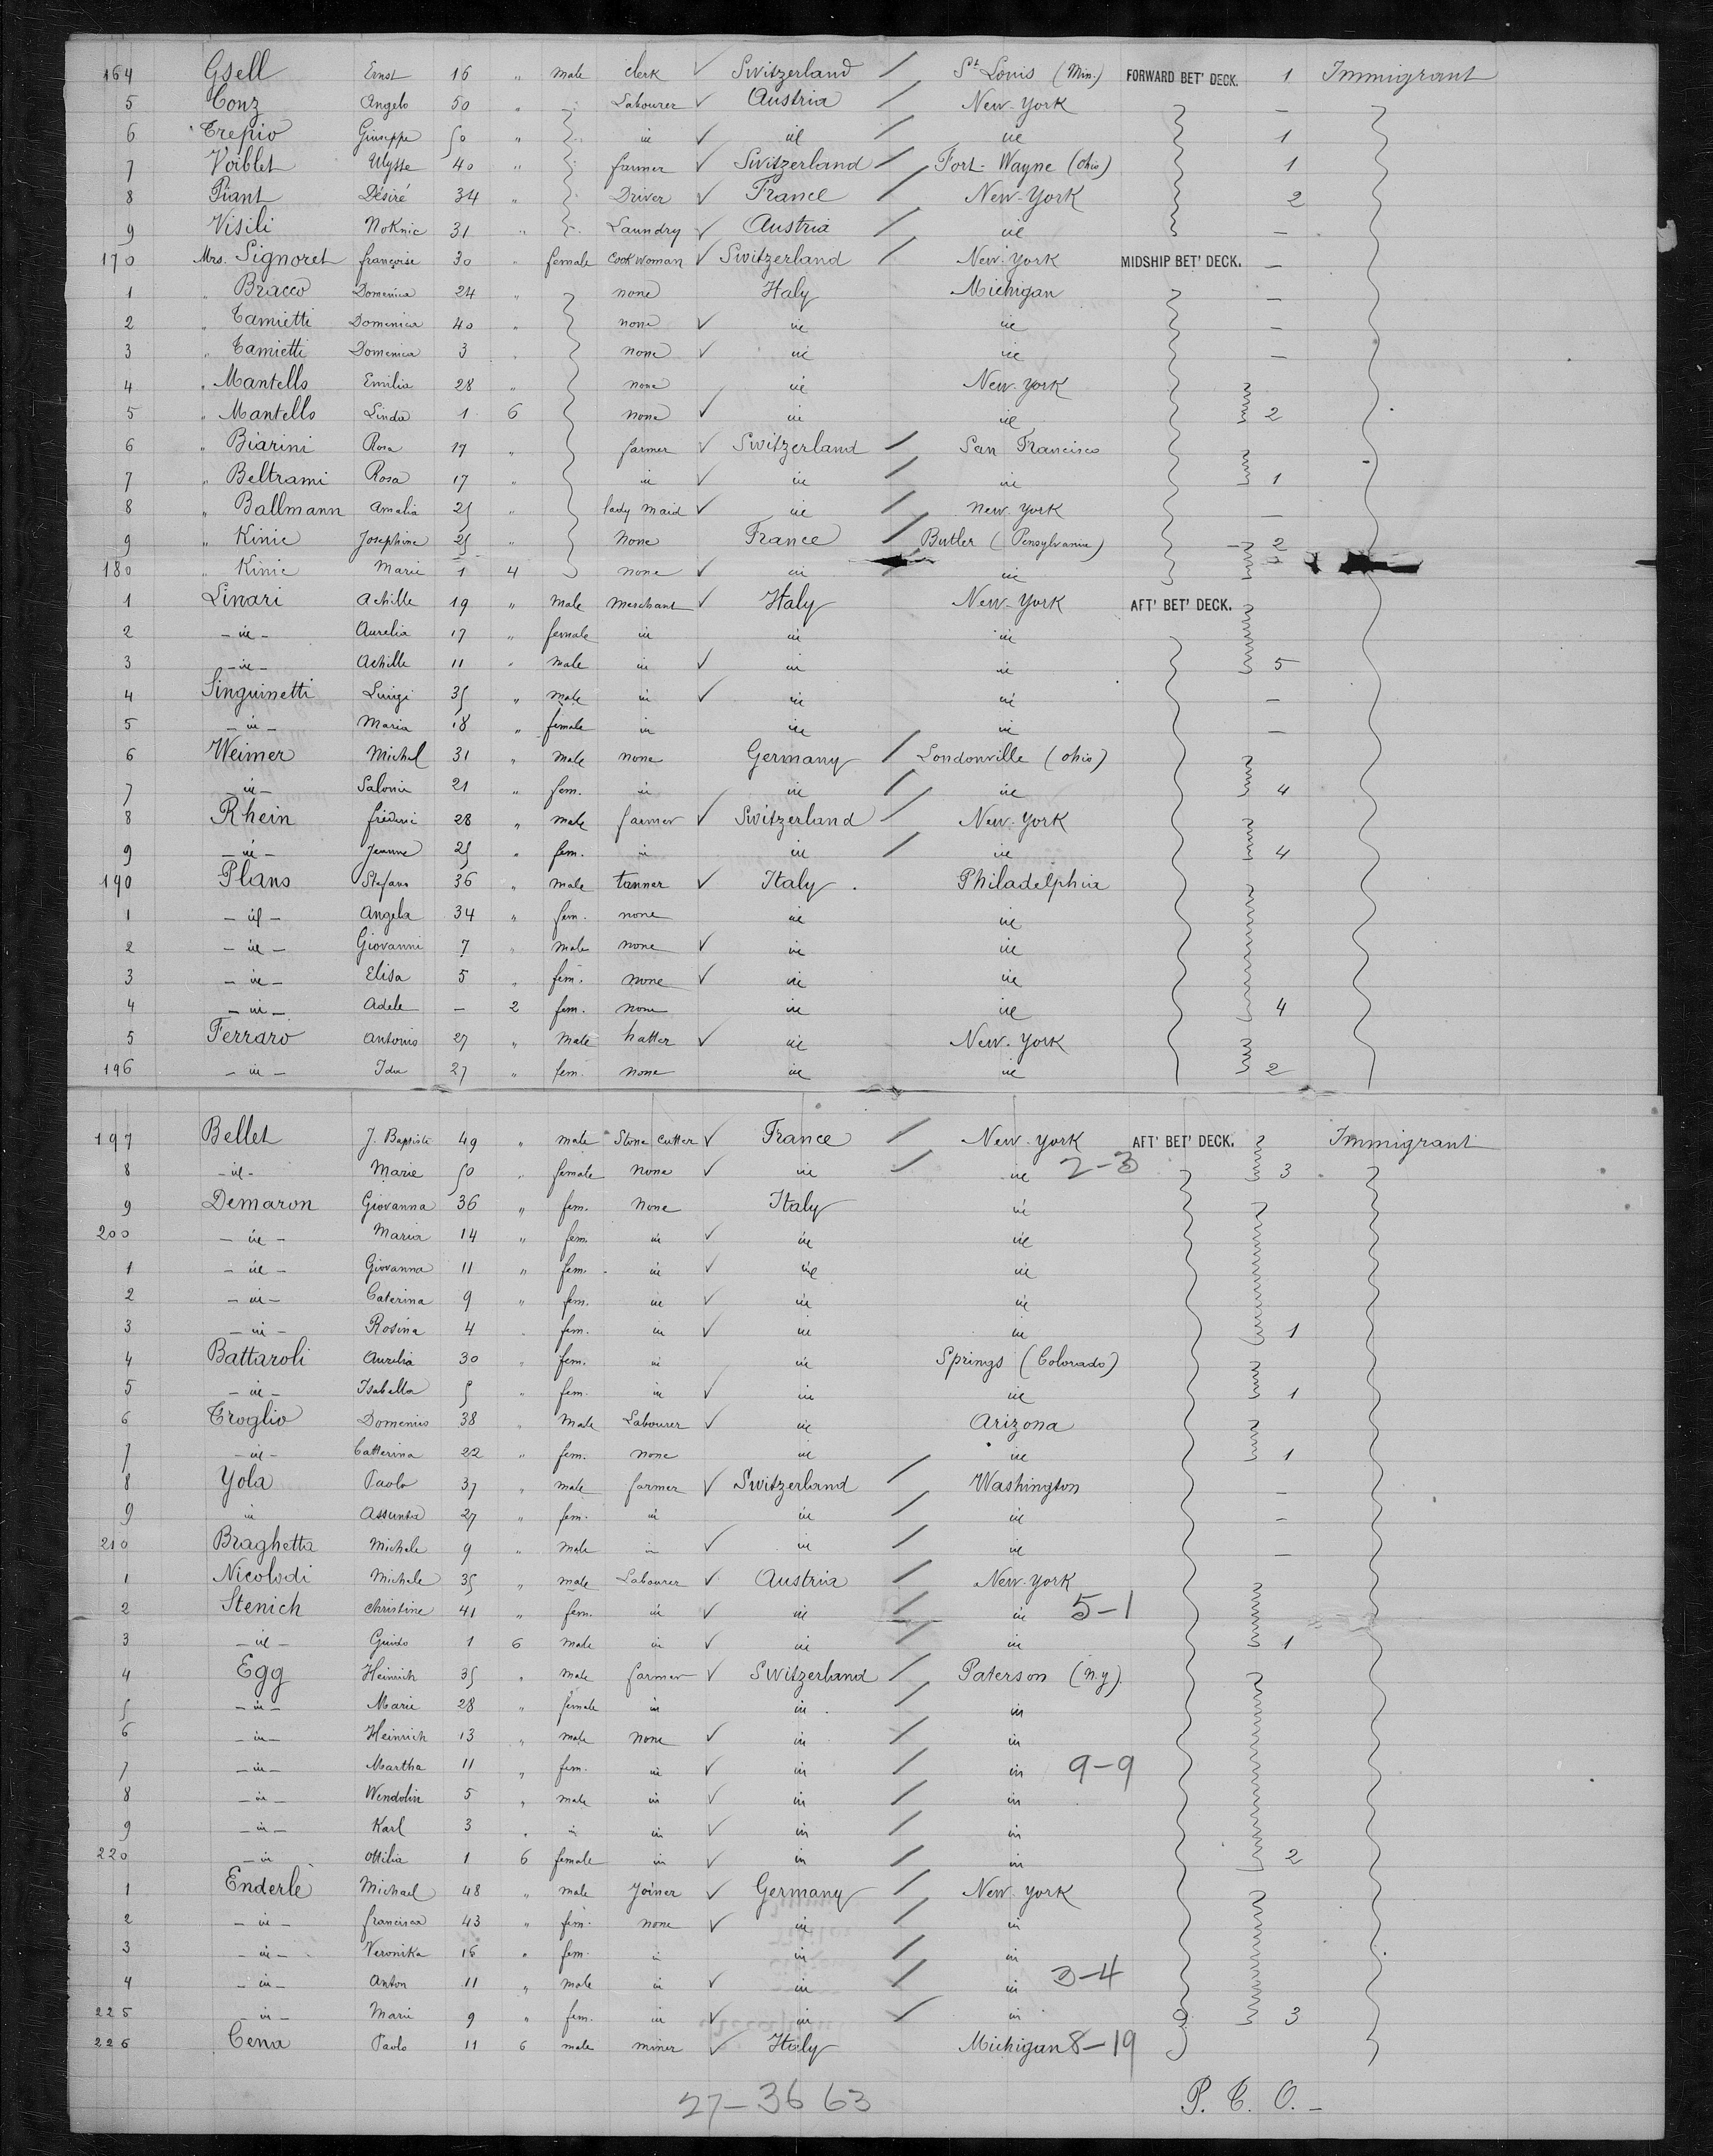 164 Gsell Ernst 16 " male clerk ✓ Switzerland / St Louis (Min.) FORWARD BET' DECK. 1 Immigrant
5 Conz Angelo 50 " Labourer ✓ Austria / New-York —
6 Trepio Giuseppe 50 " id ✓ id / id 1
7 Voiblet Ulysse 40 " farmer ✓ Switzerland / Fort-Wayne (Ohio) 1
8 Piant Désiré 34 " Driver ✓ France / New-York 2
9 Visili 31 " Laundry ✓ Austria / id —
170 Mrs. Signoret françoise 30 " female Cook woman ✓ Switzerland / New-York MIDSHIP BET' DECK. —
1 " Bracco Domenica 24 " none Italy Michigan —
2 " Tamietti Domenica 40 " none ✓ id id —
3 " Tamietti Domenica 3 " none ✓ id id —
4 " Mantello Emilia 28 " none id New-York
5 " Mantello Linda 1 6 none ✓ id id 2
6 " Biarini Rosa 17 " farmer ✓ Switzerland / San Francisco
7 " Beltrami Rosa 17 " id ✓ id / id 1
8 " Ballmann Amalia 25 " lady maid ✓ id / New-York —
9 " Kinie Josephine 25 " None France / Butler (Pensylvania) 2
180 " Kinie Marie 1 4 none ✓ id id
1 Linari Achille 19 " male merchant ✓ Italy New-York AFT' BET' DECK.
2 - id - Aurelia 17 " female id id id
3 - id - Achille 11 " male id ✓ id id 5
4 Singuinetti Luigi 35 " male id ✓ id id —
5 - id - Maria 18 " female id id id —
6 Weimer Michel 31 " male none Germany / Londonville (Ohio)
7 - id - 21 " fem. id id / id 4
8 Rhein 28 " male farmer ✓ Switzerland / New-York
9 - id - Jeanne 25 " fem. id id / id 4
190 Plans Stefano 36 " male tanner ✓ Italy Philadelphia
1 - id - Angela 34 " fem. none id id
2 - id - Giovanni 7 " male none ✓ id id
3 - id - Elisa 5 " fem. none ✓ id id
4 - id - Adele — 2 fem. none id id 4
5 Ferraro Antonio 27 " male hatter ✓ id New-York
196 - id - Ida 27 " fem. none id id 2
197 Bellet J. Baptiste 49 " male Stone Cutter ✓ France / New-York AFT' BET' DECK. Immigrant
8 - id - Marie 50 " female none ✓ id / id 2-3 3
9 Demaron Giovanna 36 " fem. None Italy id
200 - id - Maria 14 " fem. id ✓ id id
1 - id - Giovanna 11 " fem. id ✓ id id
2 - id - Caterina 9 " fem. id ✓ id id
3 - id - Rosina 4 " fem. id ✓ id id 1
4 Battaroli Aurelia 30 " fem. id id Springs (Colorado)
5 - id - Isabella 5 " fem. id ✓ id id 1
6 Troglio Domenico 38 " Male Labourer ✓ id Arizona
7 - id - Catterina 22 " fem. none id id 1
8 Yola Paolo 37 " male farmer ✓ Switzerland / Washington —
9 id Assunta 27 " fem. id id / id —
210 Braghetta Michele 9 " male id ✓ id / id —
1 Nicolodi Michele 35 " male Labourer ✓ Austria / New-York
2 Stenich Christine 41 " fem. id ✓ id / id 5-1
3 - id - Guido 1 6 male id ✓ id / id 1
4 Egg Heinrich 35 " male farmer ✓ Switzerland / Paterson (N.Y.)
5 - id - Marie 28 " female id id / id
6 - id - Heinrich 13 " male none ✓ id / id
7 - id - Martha 11 " fem. id ✓ id / id 9-9
8 - id - Wendolin 5 " male id ✓ id / id
9 - id - Karl 3 " id id ✓ id / id
220 - id Ottilia 1 6 female id ✓ id / id 2
1 Enderlé Michael 48 " male Joiner ✓ Germany / New York
2 - id - francisca 43 " fem. none ✓ id / id
3 - id - Veronika 16 " fem. id id / id
4 - id - Anton 11 " male id ✓ id / id 3-4
225 - id - Marie 9 " fem. id ✓ id / id 3
226 Cena Paolo 11 6 male miner ✓ Italy Michigan 8-19
27-36 63 P. T. O. -